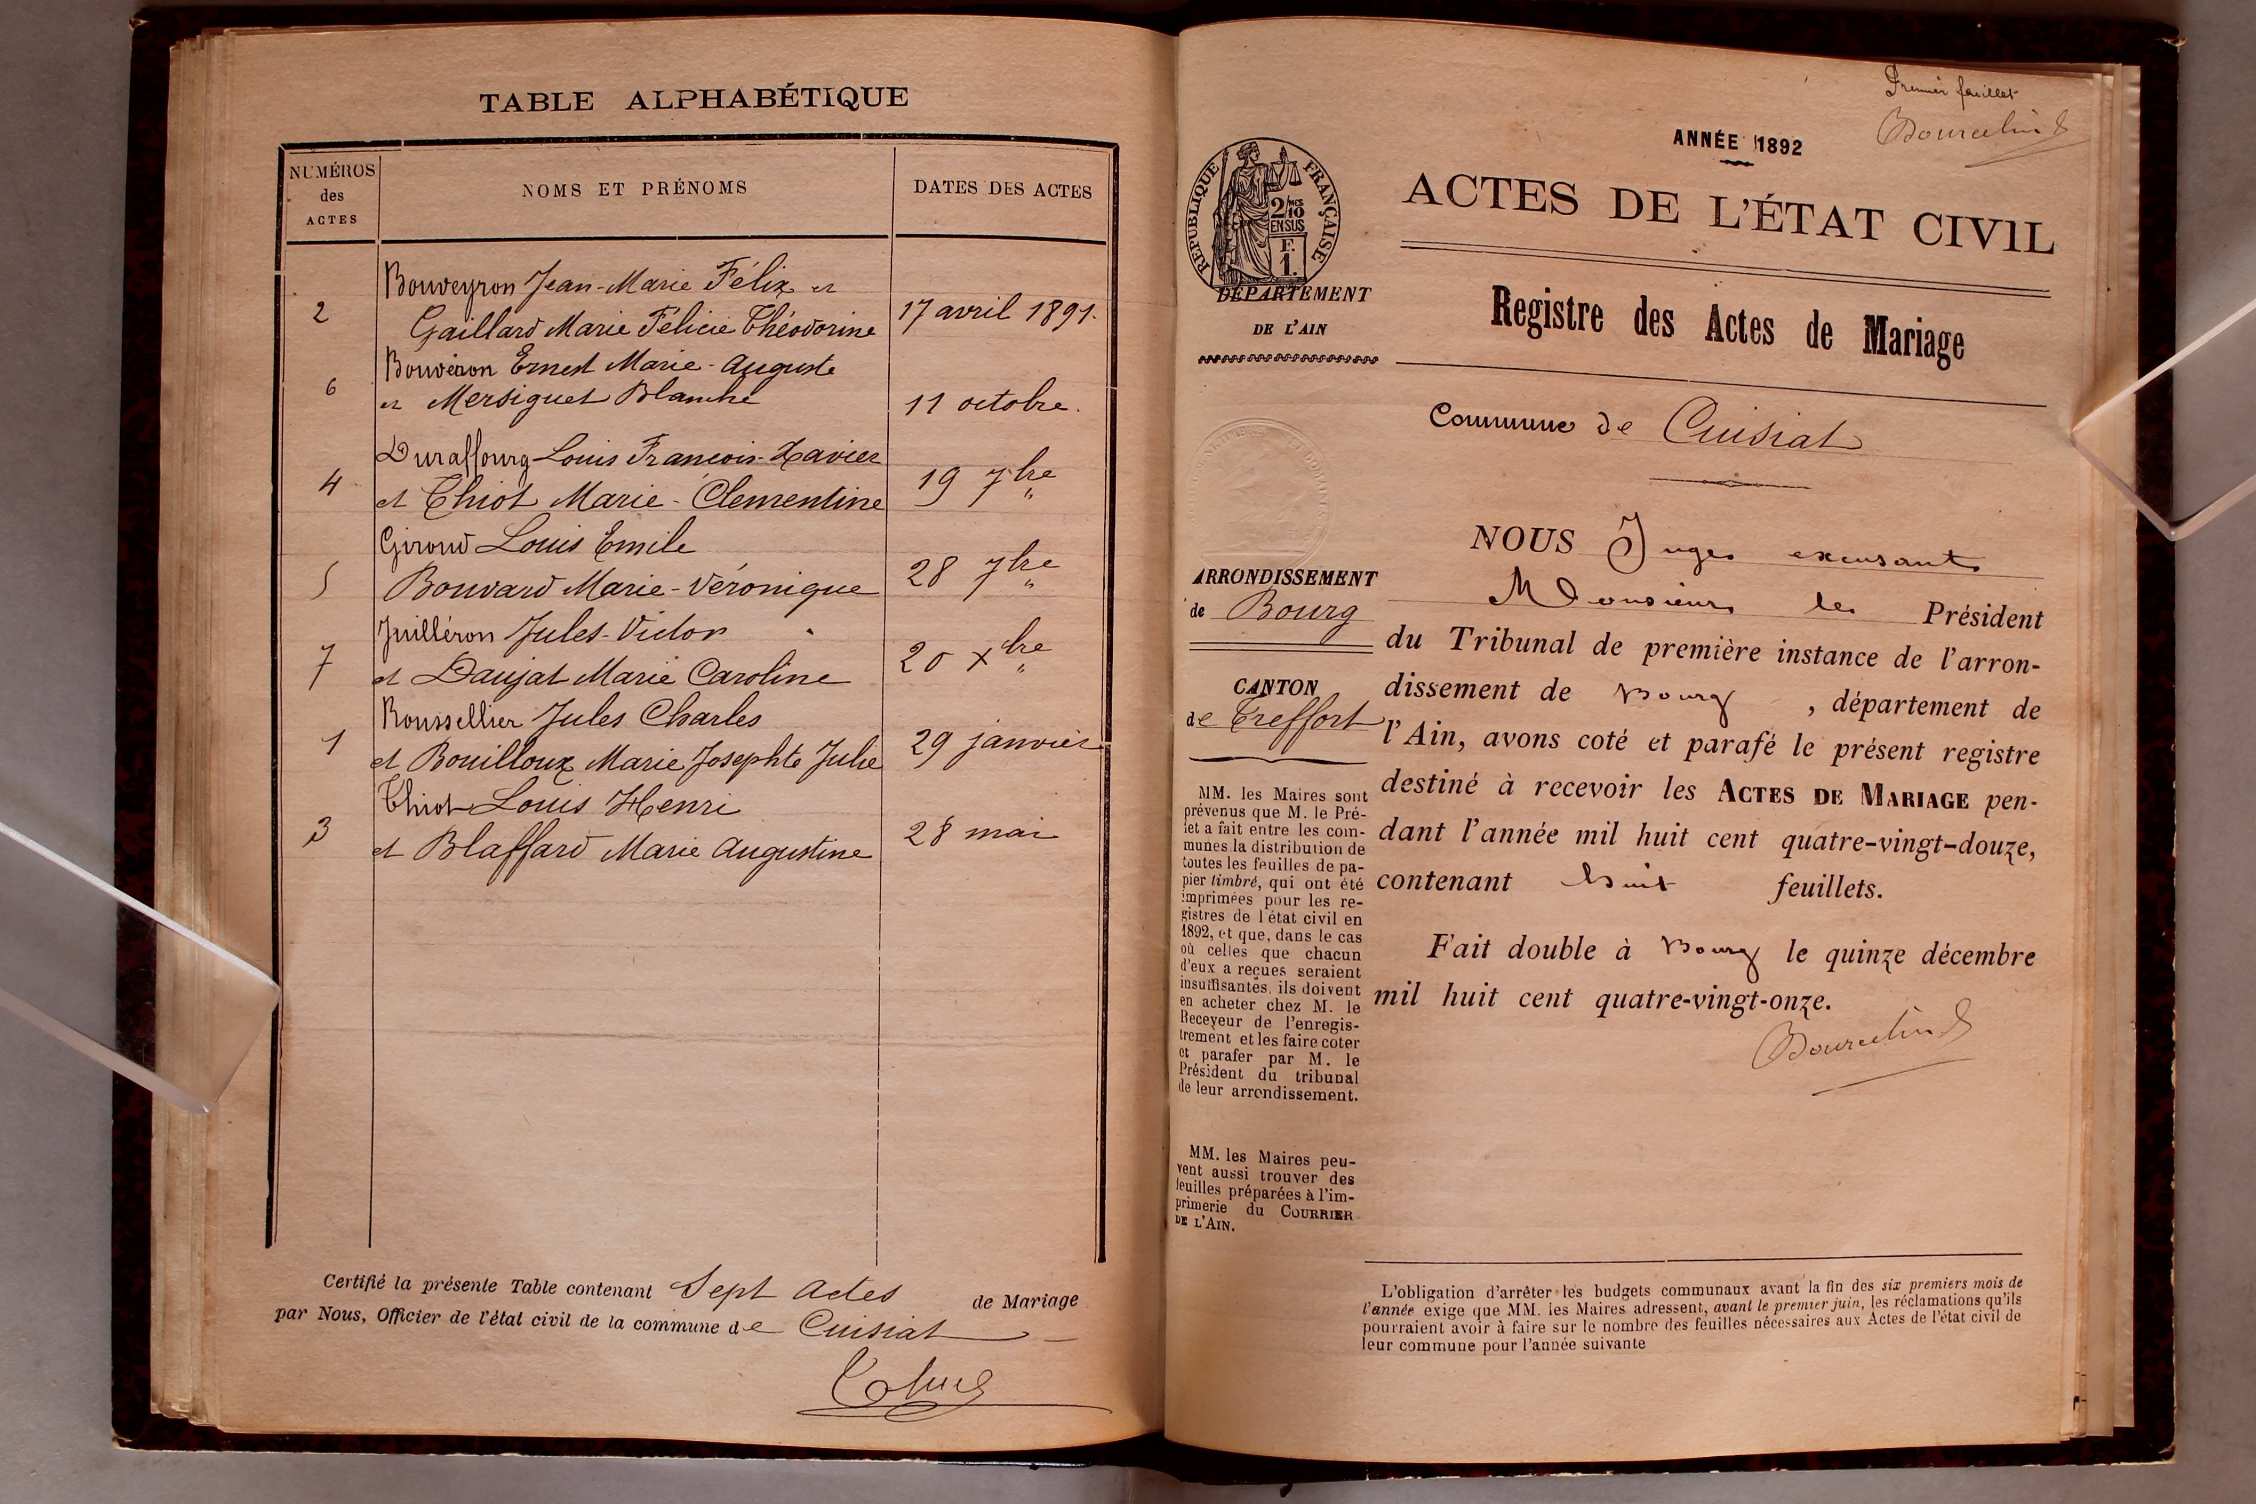 TABLE ALPHABÉTIQUE
NUMÉROS
des
ACTES
NOMS ET PRÉNOMS
DATES DES ACTES
Bouveyron Jean-Marie Félix et
2 Gaillard Marie Félicie Théodorine 17 avril 1891.
Bouvéron Ernest Marie-Auguste
6 et Mersiguet Blanche 11 octobre.
Duraffourg Louis François-Xavier
4 et Thiot Marie-Clementine 19 7bre
Giroud Louis Emile
5 Bouvard Marie-Véronique 28 7bre
Juilléron Jules-Victor
7 et Daujat Marie Caroline 20 xbre
Roussellier Jules Charles
1 et Bouilloux Marie Josephte Julie 29 janvier
Thiot Louis Henri
3 et Blaffard Marie Augustine 28 mai
Certifié la présente Table contenant Sept Actes de Mariage
par Nous, Officier de l'état civil de la commune de Cuisiat
Premier feuillet
ANNÉE 1892
ACTES DE L'ÉTAT CIVIL
Registre des Actes de Mariage
RÉPUBLIQUE FRANÇAISE
2/10mes
EN SUS
F.
1.
DÉPARTEMENT
DE L'AIN
Commune de Cuisiat
ARRONDISSEMENT
de Bourg
CANTON
de Treffort
MM. les Maires sont
prévenus que M. le Pré-
fet a fait entre les com-
munes la distribution de
toutes les feuilles de pa-
pier timbré, qui ont été
imprimées pour les re-
gistres de l'état civil en
1892, et que, dans le cas
où celles que chacun
d'eux a reçues seraient
insuffisantes, ils doivent
en acheter chez M. le
Receveur de l'enregis-
trement et les faire coter
et parafer par M. le
Président du tribunal
de leur arrondissement.
MM. les Maires peu-
vent aussi trouver des
feuilles préparées à l'im-
primerie du COURRIER
DE L'AIN.
NOUS Juge excusant
Monsieur le Président
du Tribunal de première instance de l'arron-
dissement de Bourg, département de
l'Ain, avons coté et parafé le présent registre
destiné à recevoir les ACTES DE MARIAGE pen-
dant l'année mil huit cent quatre-vingt-douze,
contenant huit feuillets.
Fait double à Bourg le quinze décembre
mil huit cent quatre-vingt-onze.
L'obligation d'arrêter les budgets communaux avant la fin des six premiers mois de
l'année exige que MM. les Maires adressent, avant le premier juin, les réclamations qu'ils
pourraient avoir à faire sur le nombre des feuilles nécessaires aux Actes de l'état civil de
leur commune pour l'année suivante